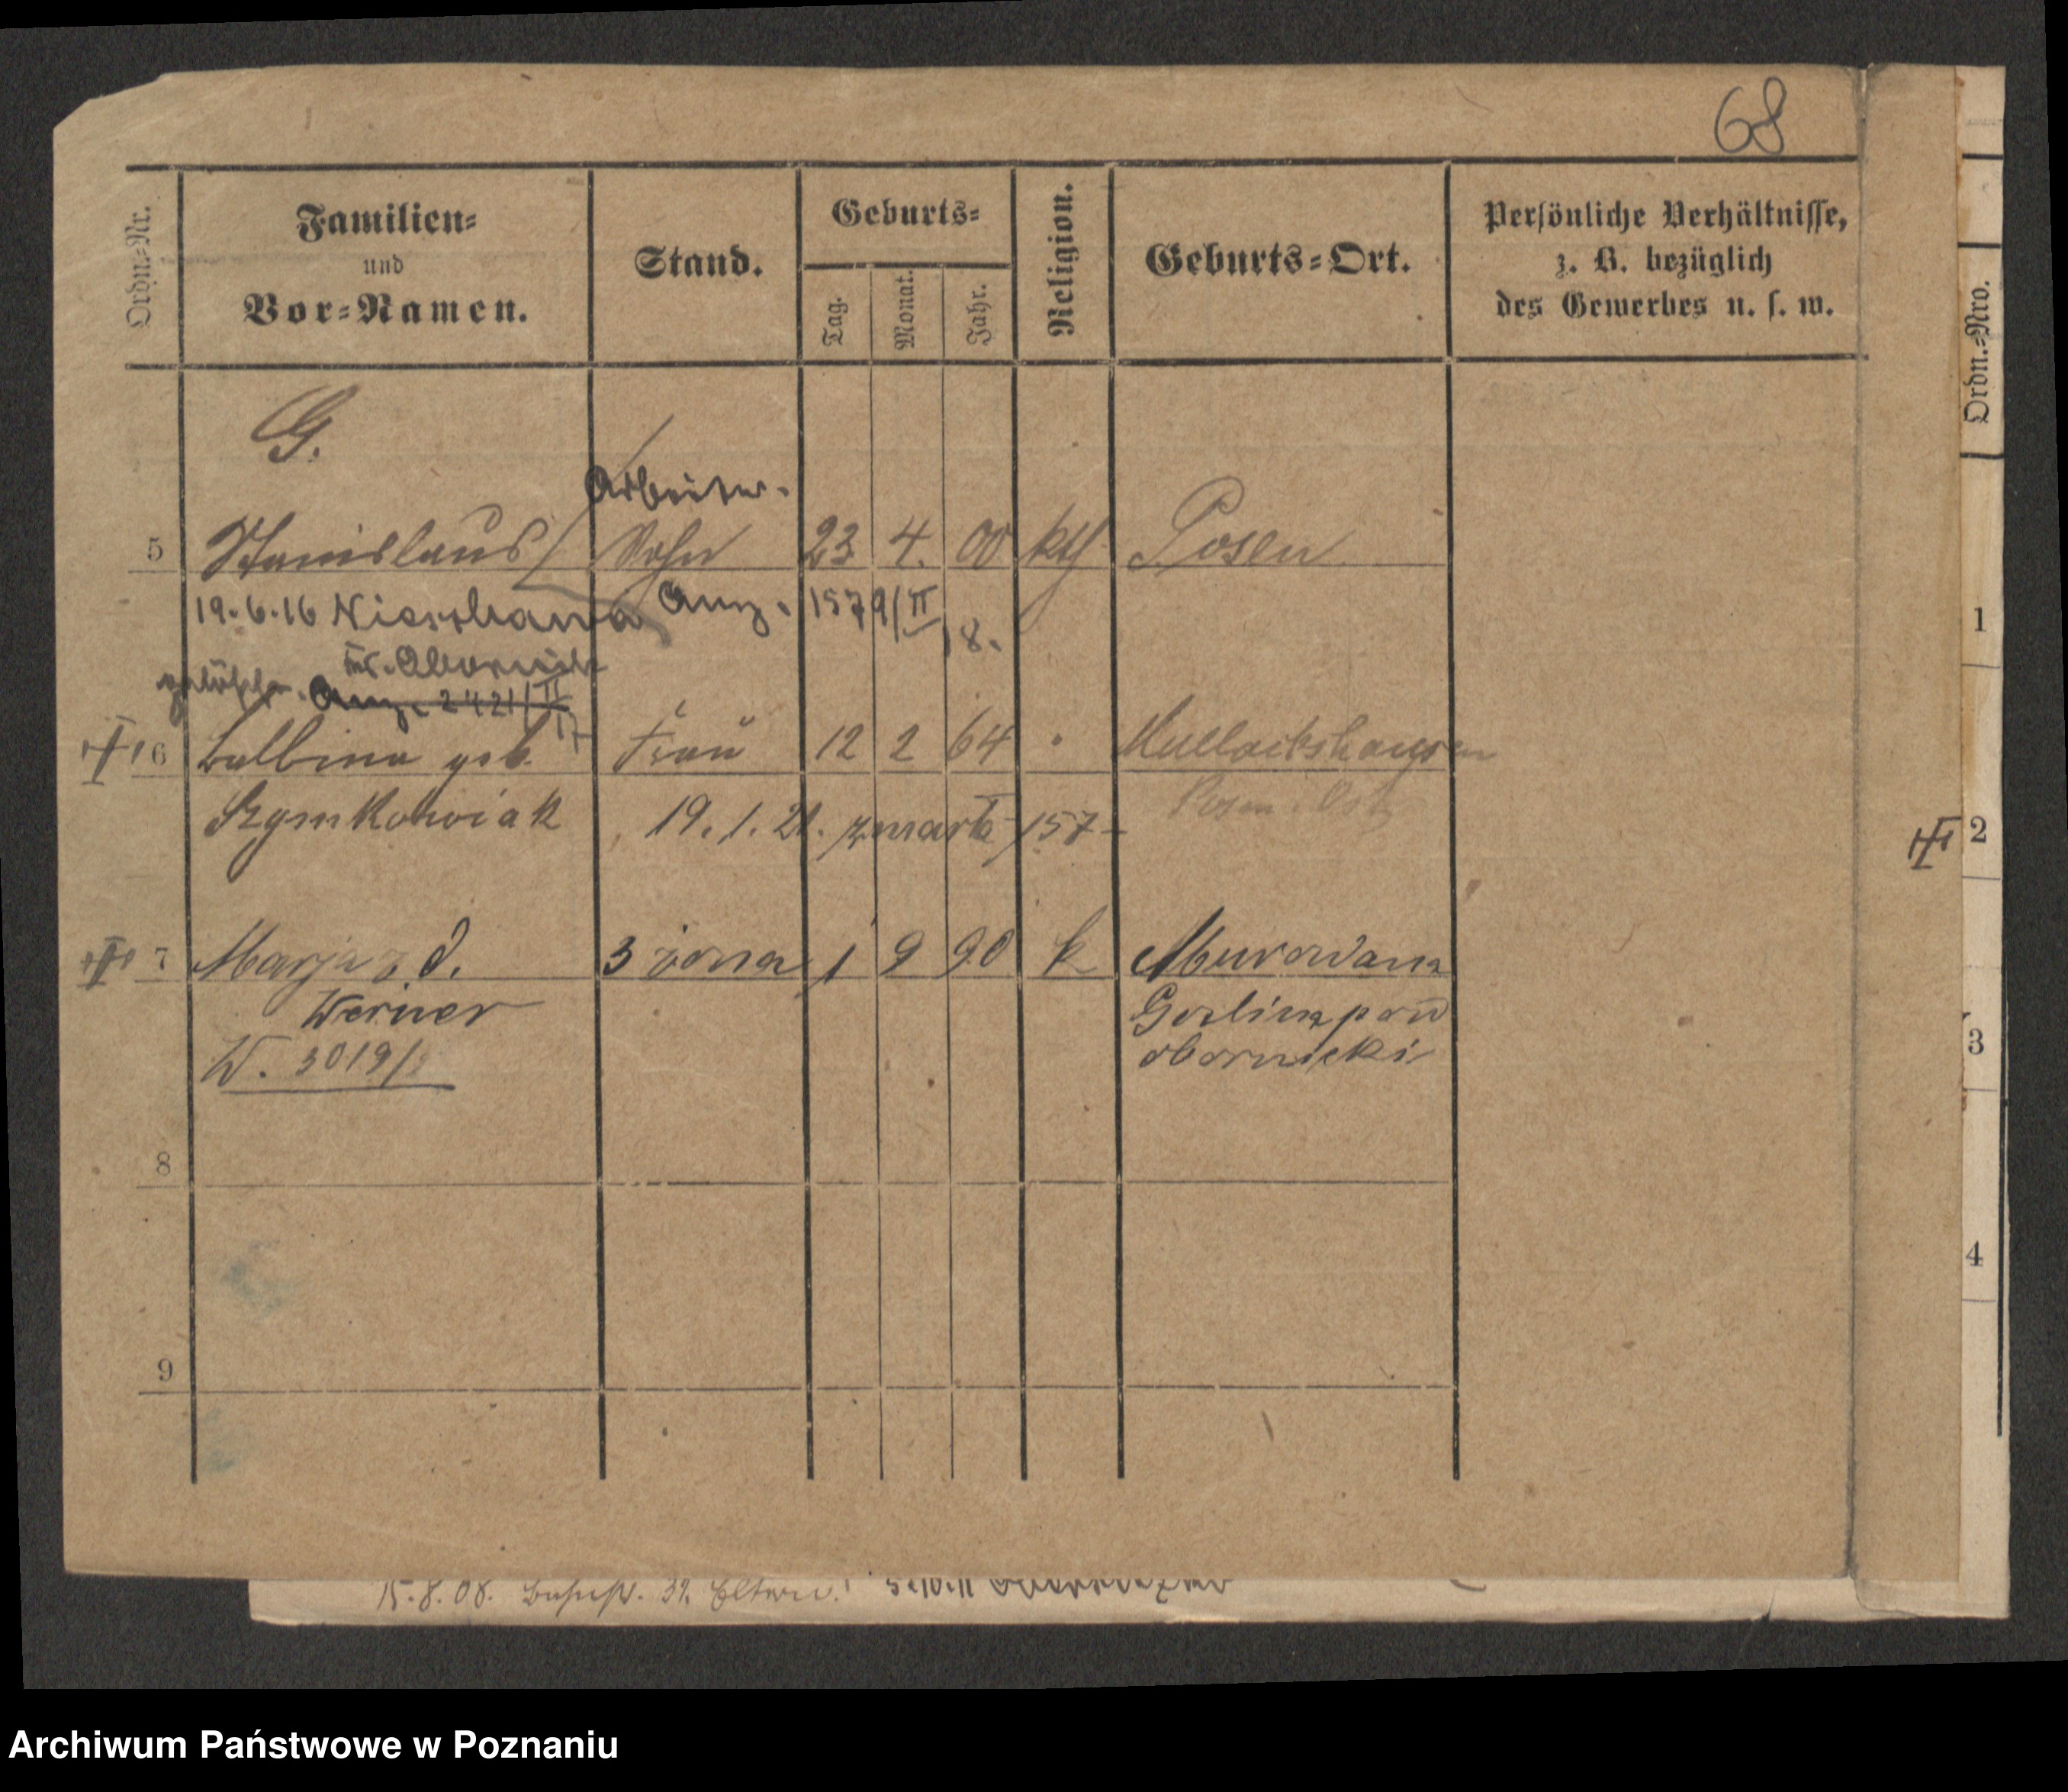 68
Ordn.=Nr.
Familien=
und
Vor=Namen.
Stand.
Geburts=
Tag.
Monat.
Jahr.
Religion.
Geburts=Ort.
Persönliche Verhältnisse,
z. B. bezüglich
des Gewerbes u. s. w.
Ordn.=Nro.
G.
Arbeiter.
5 Stanislaus Sohn 23 4. 00 kth Posen
19.6.16 Anz. 1579/II
18.
gelöscht. Anz. 2421/II
17
6 Balbina geb. Frau 12 2 64
Szymkowiak 19.1.21. zmarła 157
Posen Ost
7 Marja z d. 3 żona 1 9 90 k Murowana
Werner Goslina pow
W. 3019/ obornicki
8
9
1
2
3
4
15.8.08. 39. Eltern.
Archiwum Państwowe w Poznaniu